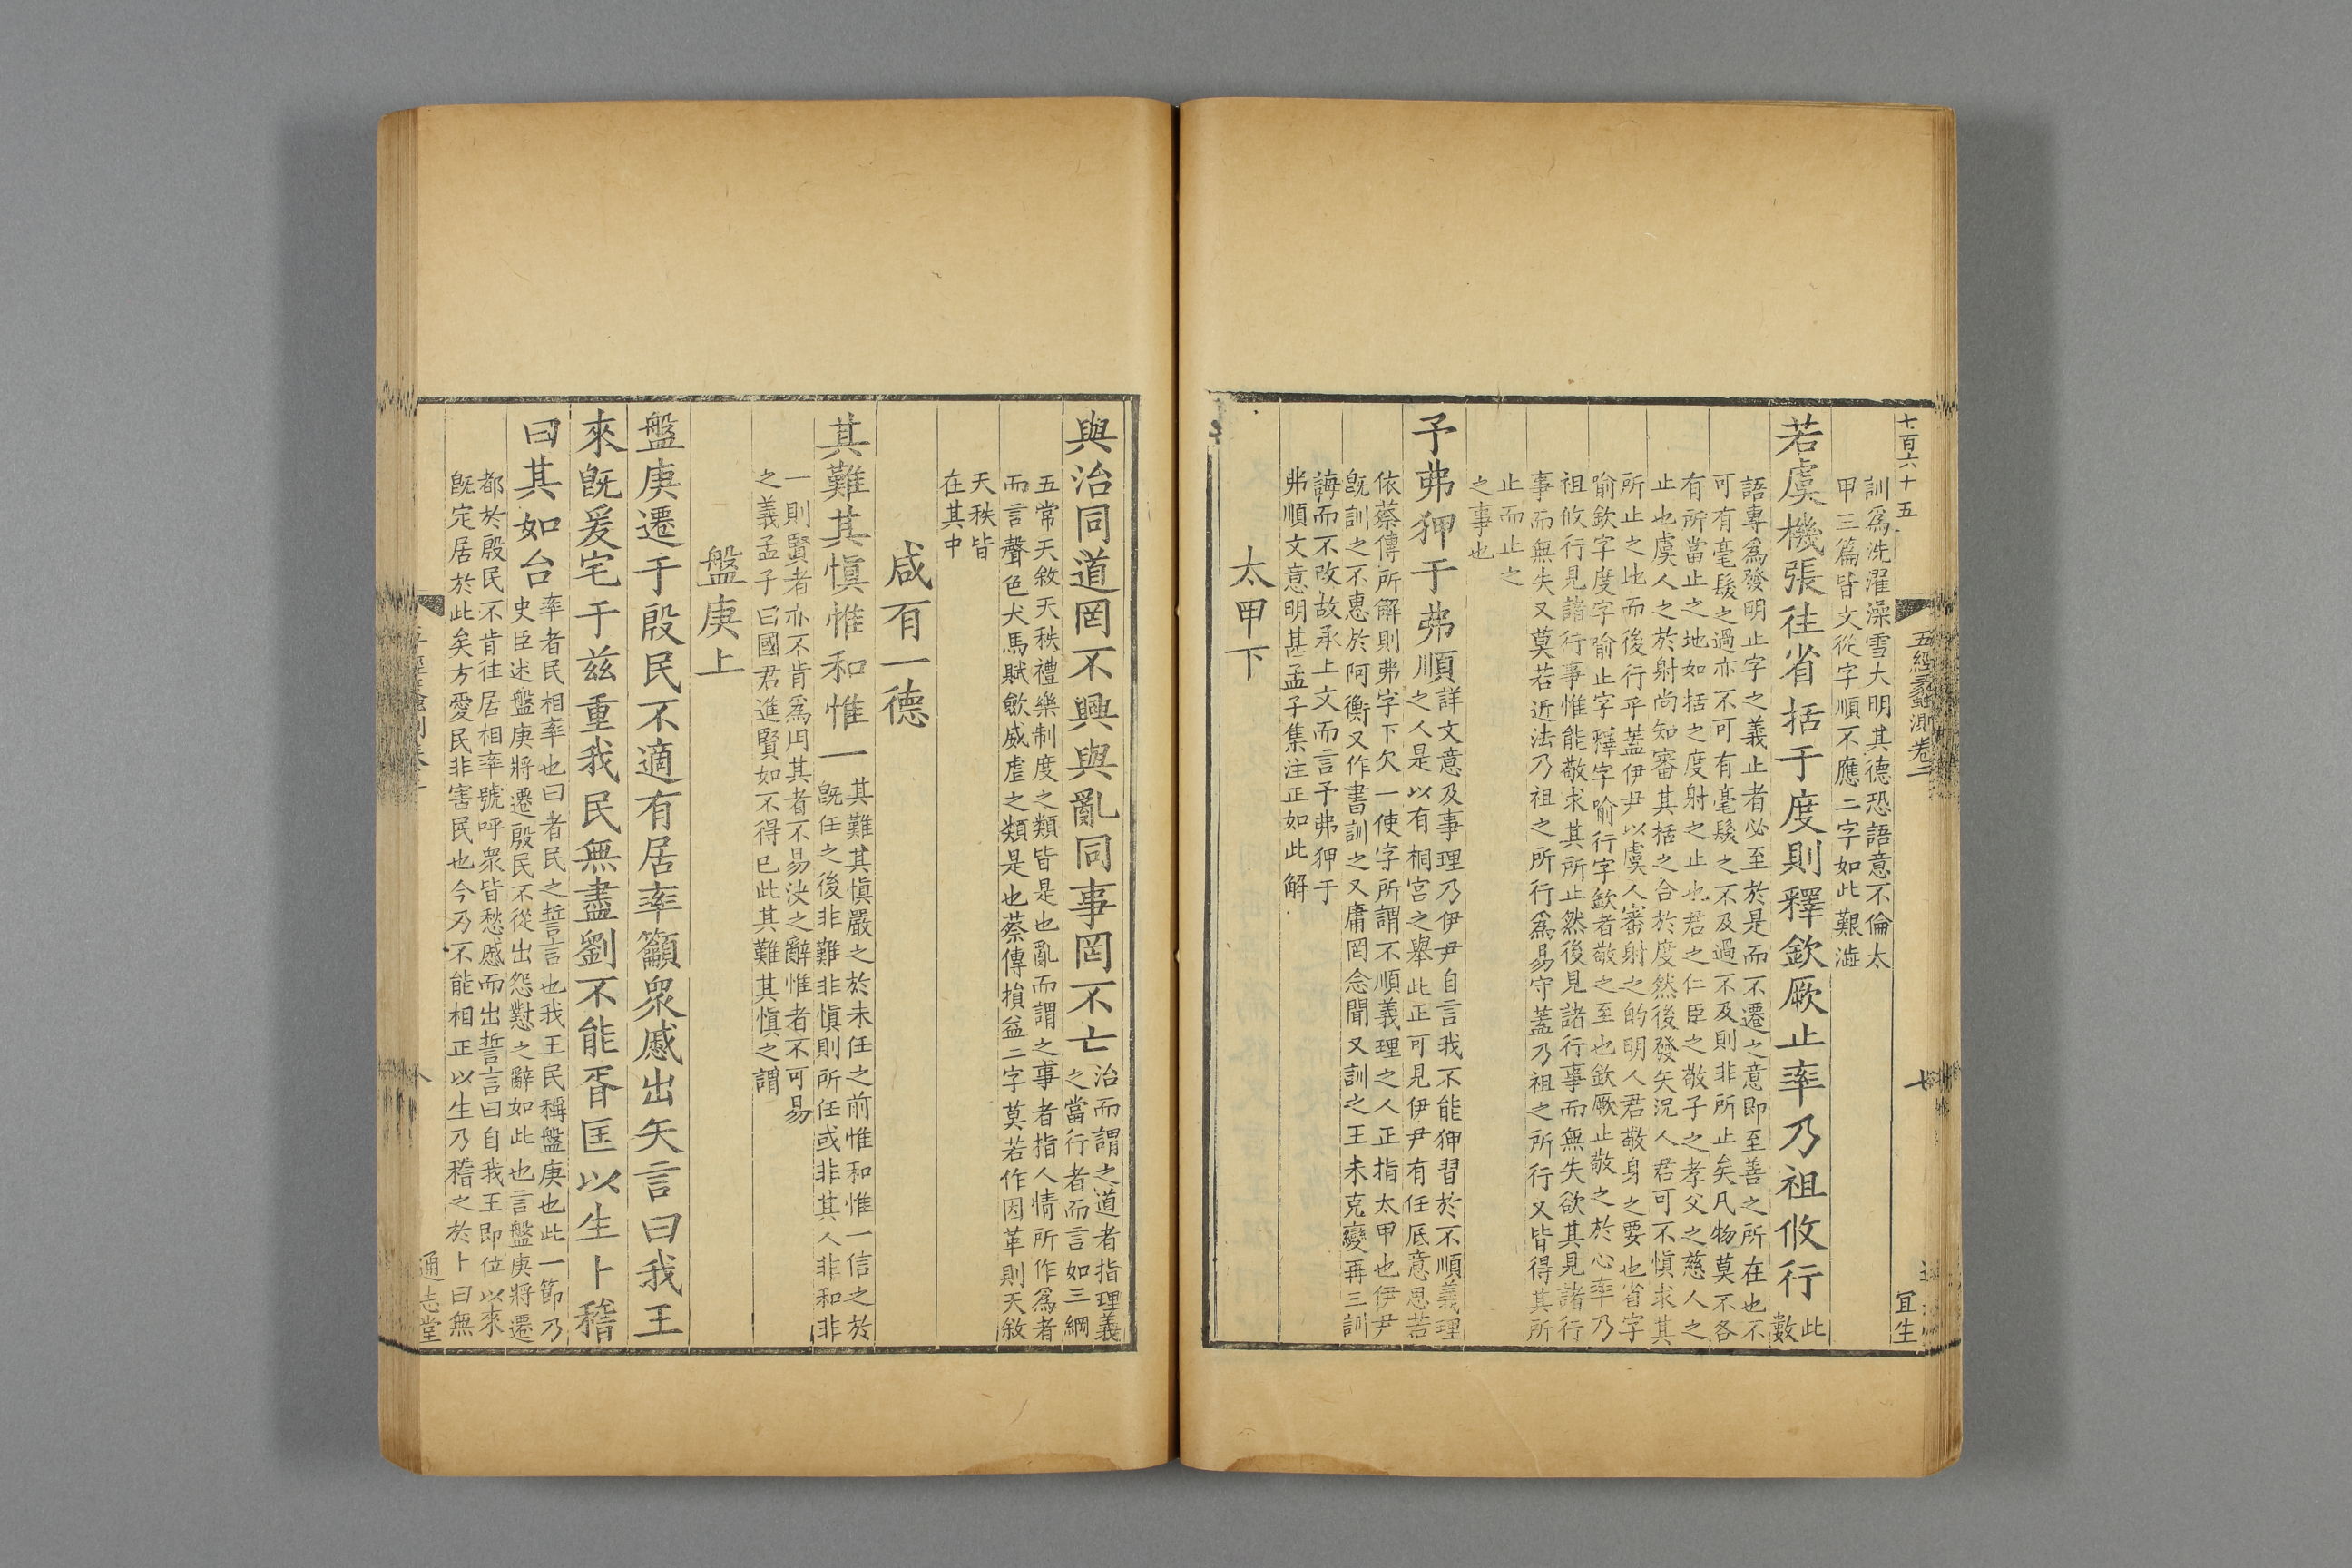 七百六十五
五經蠡測卷二
七
宜生
訓爲洗濯澡雪大明其德恐語意不倫太
甲三篇皆文從字順不應二字如此艱澁
若虞機張往省括于度則釋欽厥止率乃祖攸行此
數
語專爲發明止字之義止者必至於是而不遷之意即至善之所在也不
可有毫髮之過亦不可有毫髮之不及過不及則非所止矣凡物莫不各
有所當止之地如括之度射之止也君之仁臣之敬子之孝父之慈人之
止也虞人之於射尚知審其括之合於度然後發矢況人君可不慎求其
所止之地而後行乎蓋伊尹以虞人審射之的明人君敬身之要也省字
喻欽字度字喻止字釋字喻行字欽者敬之至也欽厥止敬之於心率乃
祖攸行見諸行事惟能敬求其所止然後見諸行事而無失欲其見諸行
事而無失又莫若近法乃祖之所行爲易守蓋乃祖之所行又皆得其所
止而止之
之事也
予弗狎于弗順詳文意及事理乃伊尹自言我不能狎習於不順義理
之人是以有桐宮之舉此正可見伊尹有任底意思若
依蔡傳所解則弗字下欠一使字所謂不順義理之人正指太甲也伊尹
旣訓之不惠於阿衡又作書訓之又庸罔念聞又訓之王未克變再三訓
誨而不改故承上文而言予弗狎于
弗順文意明甚孟子集注正如此解
太甲下
與治同道罔不興與亂同事罔不亡治而謂之道者指理義
之當行者而言如三綱
五常天敘天秩禮樂制度之類皆是也亂而謂之事者指人情所作爲者
而言聲色犬馬賦歛威虐之類是也蔡傳損益二字莫若作因革則天敘
天秩皆
在其中
咸有一德
其難其愼惟和惟一其難其愼嚴之於未任之前惟和惟一信之於
旣任之後非難非愼則所任或非其人非和非
一則賢者亦不肯爲用其者不易決之辭惟者不可易
之義孟子曰國君進賢如不得已此其難其愼之謂
盤庚上
盤庚遷于殷民不適有居率籲衆慼出矢言曰我王
來旣爰宅于兹重我民無盡劉不能胥匡以生卜稽
曰其如台率者民相率也曰者民之誓言也我王民稱盤庚也此一節乃
史臣述盤庚將遷殷民不從出怨懟之辭如此也言盤庚將遷
都於殷民不肯往居相率號呼衆皆愁慼而出誓言曰自我王即位以來
旣定居於此矣方愛民非害民也今乃不能相正以生乃稽之於卜曰無
八
通志堂